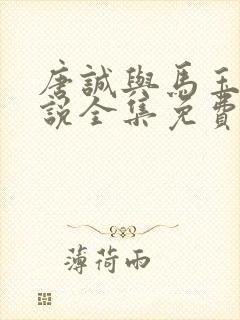 唐誠與馬玉
說全集免費
薄荷雨